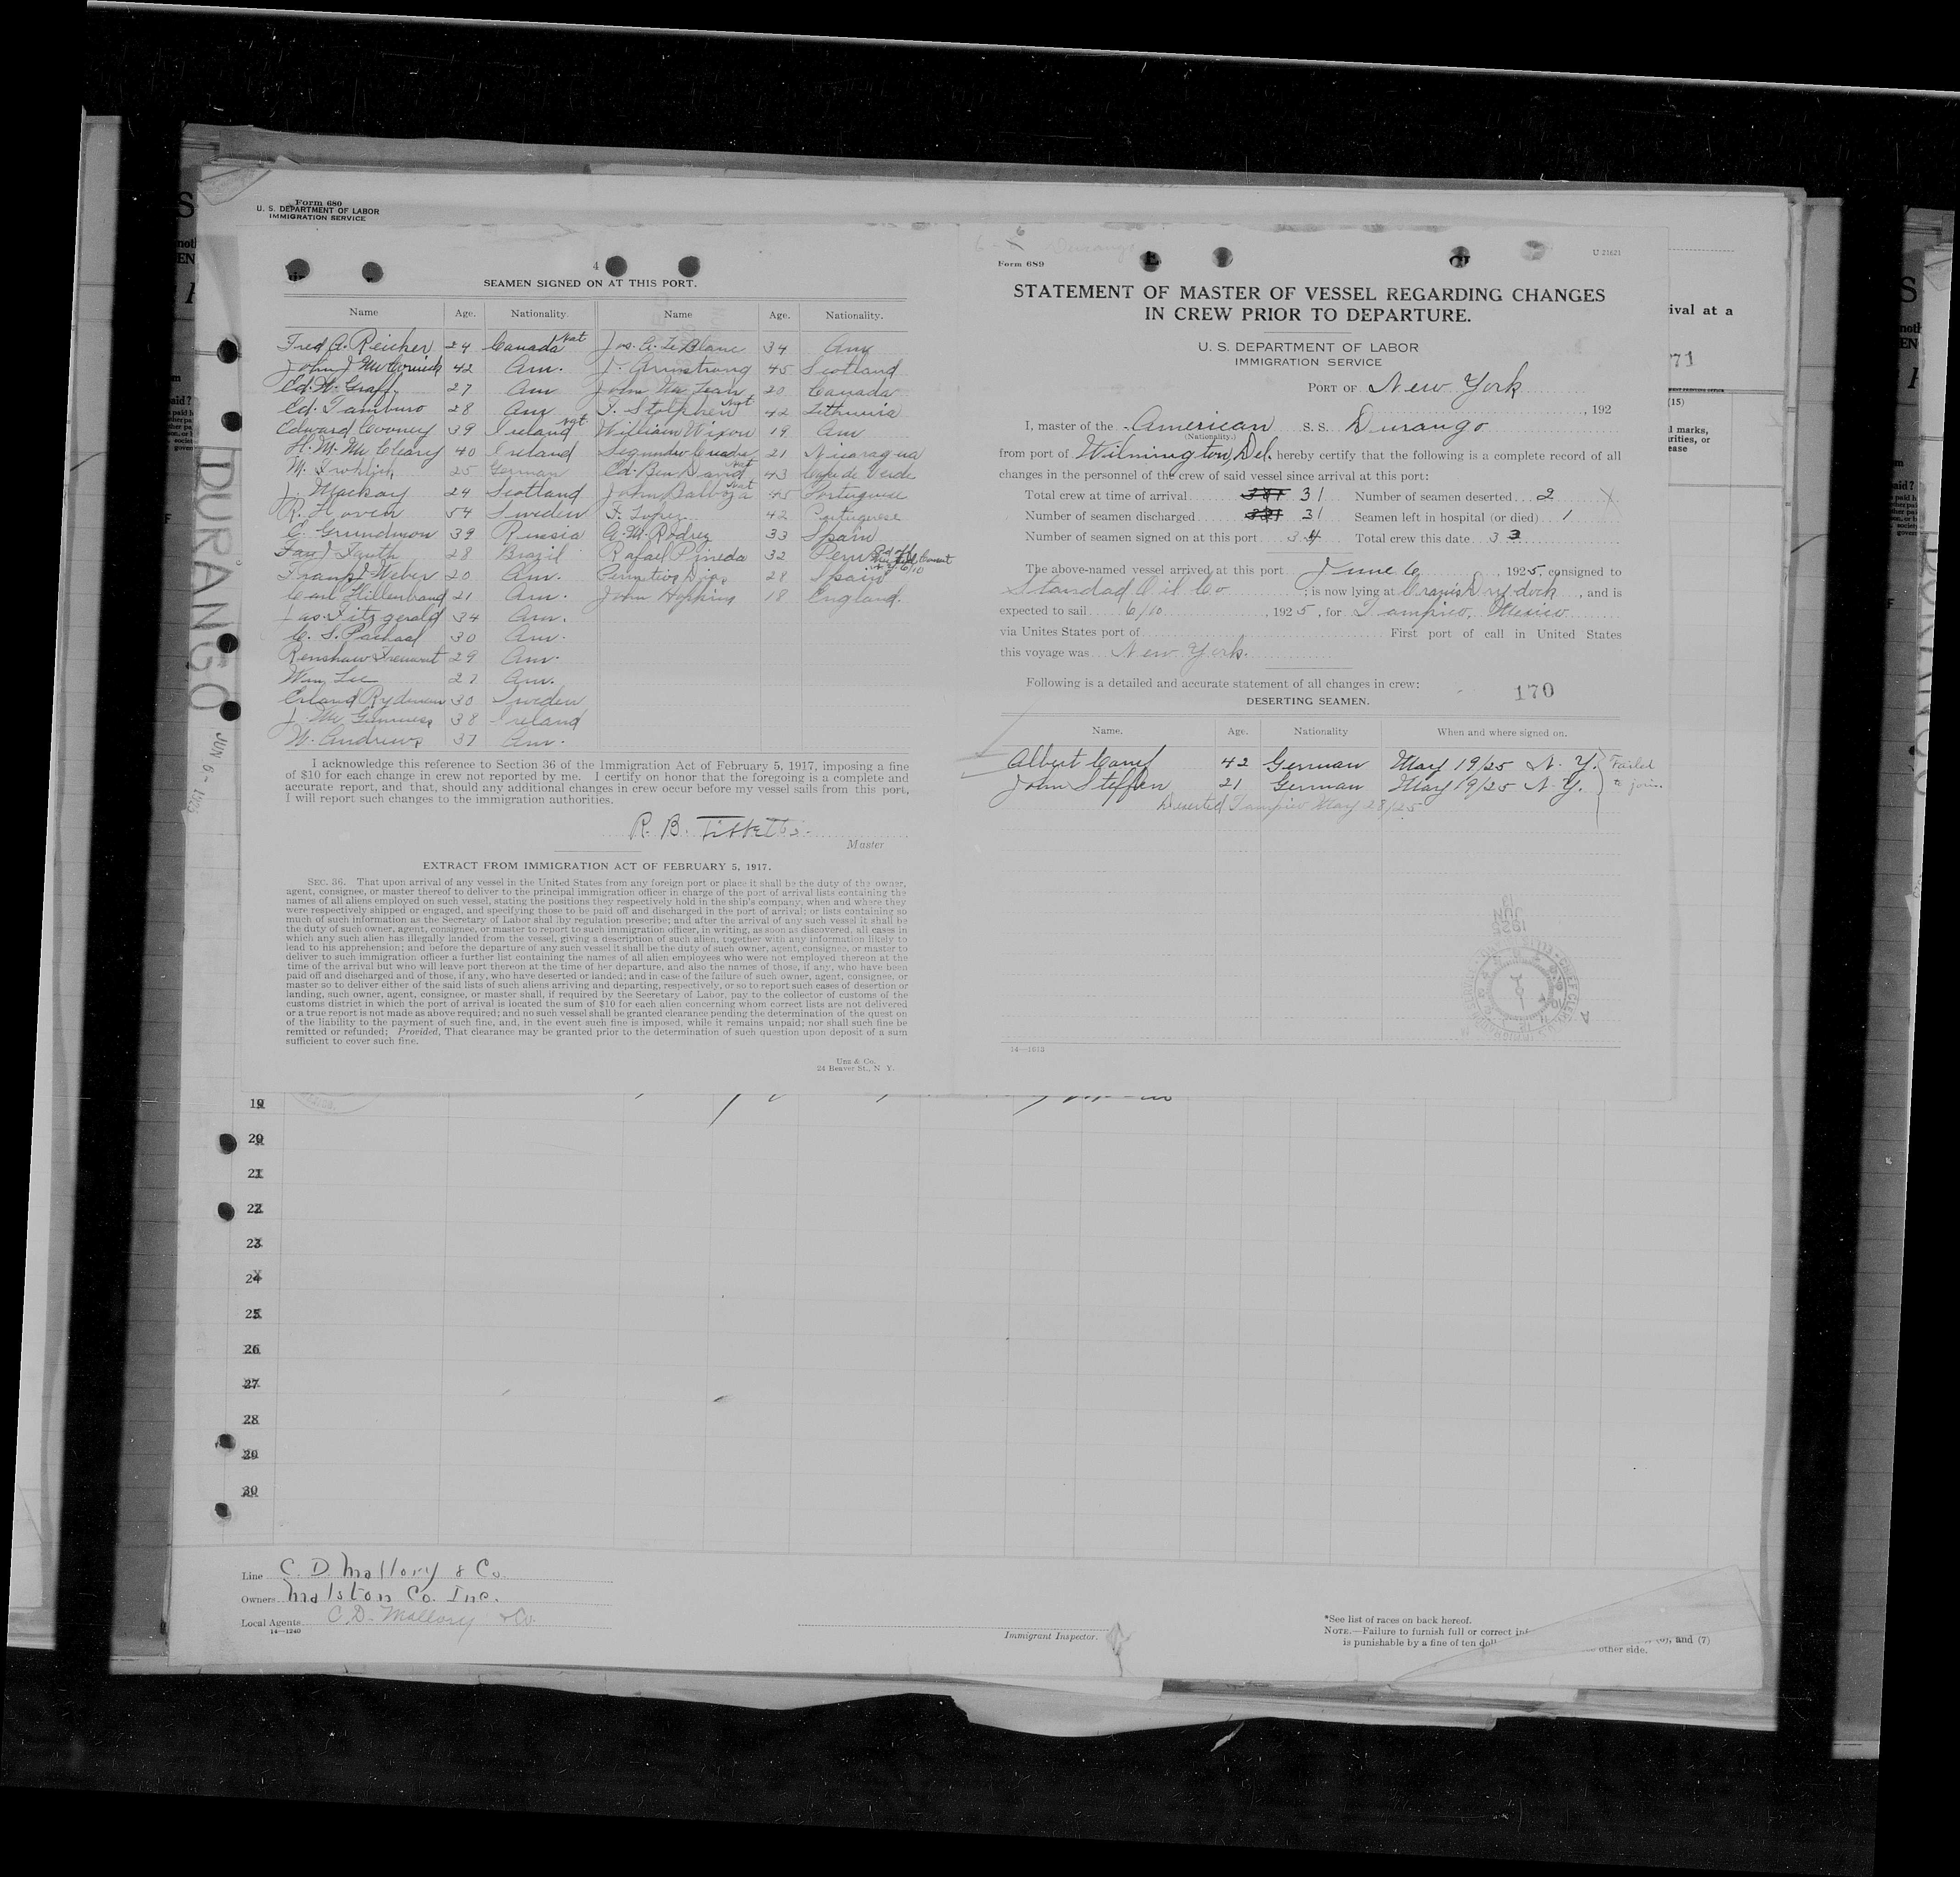 Form 680
U. S. DEPARTMENT OF LABOR
IMMIGRATION SERVICE
4
SEAMEN SIGNED ON AT THIS PORT.
Name Age. Nationality. Name Age. Nationality.
Fred A. Reicher 24 Canada Nat Jos. A. Le Blanc 34 Am
John J McCormick 42 Am. J. Armstrong 45 Scotland
Ed. W. Graff 27 Am John Mc Lean 20 Canada
Ed. Tamburo 28 Am J. Stolphen Nat 42 Lithunia
Edward Cooney 39 Ireland Nat William Wixon 19 Am
H. M. Mc Cleary 40 Ireland 21 Nicaragua
M. Frohlich 25 German Ed. Nat 43 Cape de Verde
J. Mackay 24 Scotland John Balboza Nat 45 Portuguese
R. Hoven 54 Sweden F. Lopez 42 Portuguese
E. Grundmon 39 Russia A. M. Rodrez 33 Spain
28 Brazil Rafael Pineda 32 Peru
Frank J Weber 20 Am. Dias 28 Spain
Carl Hillenbrand 21 Am. John Hopkins 18 England.
Jas. Fitzgerald 34 Am.
C. S. 30 Am.
Renshaw 29 Am.
Wm Lee 27 Am.
Erland Rydman 30 Sweden
J. Mc Guinness 38 Ireland
W. Andrews 37 Am.
I acknowledge this reference to Section 36 of the Immigration Act of February 5, 1917, imposing a fine
of $10 for each change in crew not reported by me. I certify on honor that the foregoing is a complete and
accurate report, and that, should any additional changes in crew occur before my vessel sails from this port,
I will report such changes to the immigration authorities.
R. B. Tibbetts.
Master
EXTRACT FROM IMMIGRATION ACT OF FEBRUARY 5, 1917.
SEC. 36. That upon arrival of any vessel in the United States from any foreign port or place it shall be the duty of the owner,
agent, consignee, or master thereof to deliver to the principal immigration officer in charge of the port of arrival lists containing the
names of all aliens employed on such vessel, stating the positions they respectively hold in the ship's company, when and where they
were respectively shipped or engaged, and specifying those to be paid off and discharged in the port of arrival; or lists containing so
much of such information as the Secretary of Labor shal lby regulation prescribe; and after the arrival of any such vessel it shall be
the duty of such owner, agent, consignee, or master to report to such immigration officer, in writing, as soon as discovered, all cases in
which any such alien has illegally landed from the vessel, giving a description of such alien, together with any information likely to
lead to his apprehension; and before the departure of any such vessel it shall be the duty of such owner, agent, consignee, or master to
deliver to such immigration officer a further list containing the names of all alien employees who were not employed thereon at the
time of the arrival but who will leave port thereon at the time of her departure, and also the names of those, if any, who have been
paid off and discharged and of those, if any, who have deserted or landed; and in case of the failure of such owner, agent, consignee, or
master so to deliver either of the said lists of such aliens arriving and departing, respectively, or so to report such cases of desertion or
landing, such owner, agent, consignee, or master shall, if required by the Secretary of Labor, pay to the collector of customs of the
customs district in which the port of arrival is located the sum of $10 for each alien concerning whom correct lists are not delivered
or a true report is not made as above required; and no such vessel shall be granted clearance pending the determination of the quest on
of the liability to the payment of such fine, and, in the event such fine is imposed, while it remains unpaid; nor shall such fine be
remitted or refunded; Provided, That clearance may be granted prior to the determination of such question upon deposit of a sum
sufficient to cover such fine.
Unz & Co.
24 Beaver St., N Y.
Durango
Form 689
U-21621
STATEMENT OF MASTER OF VESSEL REGARDING CHANGES
IN CREW PRIOR TO DEPARTURE.
U. S. DEPARTMENT OF LABOR
IMMIGRATION SERVICE
PORT OF New York
, 192
I, master of the American S. S. Durango
(Nationality.)
from port of Wilmington, Del. hereby certify that the following is a complete record of all
changes in the personnel of the crew of said vessel since arrival at this port:
Total crew at time of arrival 31 Number of seamen deserted 2
Number of seamen discharged 31 Seamen left in hospital (or died) 1
Number of seamen signed on at this port 34 Total crew this date 33
The above-named vessel arrived at this port June 6, 1925, consigned to
Standad Oil Co ; is now lying at Dry-dock, and is
expected to sail 6/10, 1925, for Tampico, Mexico
via Unites States port of First port of call in United States
this voyage was New York.
Following is a detailed and accurate statement of all changes in crew:
170
DESERTING SEAMEN.
Name. Age. Nationality When and where signed on.
Albert 42 German May 19/25 N. Y. Failed
John Steffen 21 German May 19/25 N. Y. to join.
Deserted Tampico May 28/25
14—1613
DURANGO
JUN 6 - 1925
ival at a
71
(15)
19
20
21
22
23
24
25
26
27
28
29
30
Line C. D. Mallory & Co.
Owners Malston Co. Inc.
Local Agents C. D. Mallory & Co.
14—1240
Immigrant Inspector.
*See list of races on back hereof.
NOTE.—Failure to furnish full or correct
is punishable by a fine of ten
and (7)
other side.